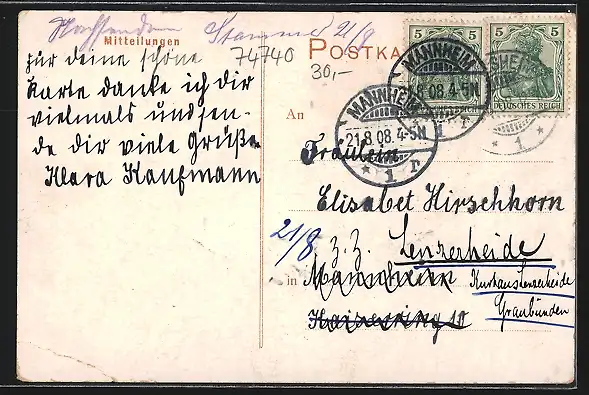 Nachsenden Stammed 21/8
Mitteilungen
74740
für deine schöne
Karte danke ich dir
vielmals und sen-
de dir viele Grüße
Klara Kaufmann
POSTKA
30,-
5 5
5 5
DEUTSCHES REICH
MANNHEIM
21.8.08.4-5N
* 1 r
MANNHEIM
21.8.08.4-5N
1 r
* 1 *
An
Fräulein
Elisabet Hirschhorn
21/8 z. Z. Lenzerheide
in Mannheim Kurhaus Lenzerheide
Kaiserring 10 Graubünden